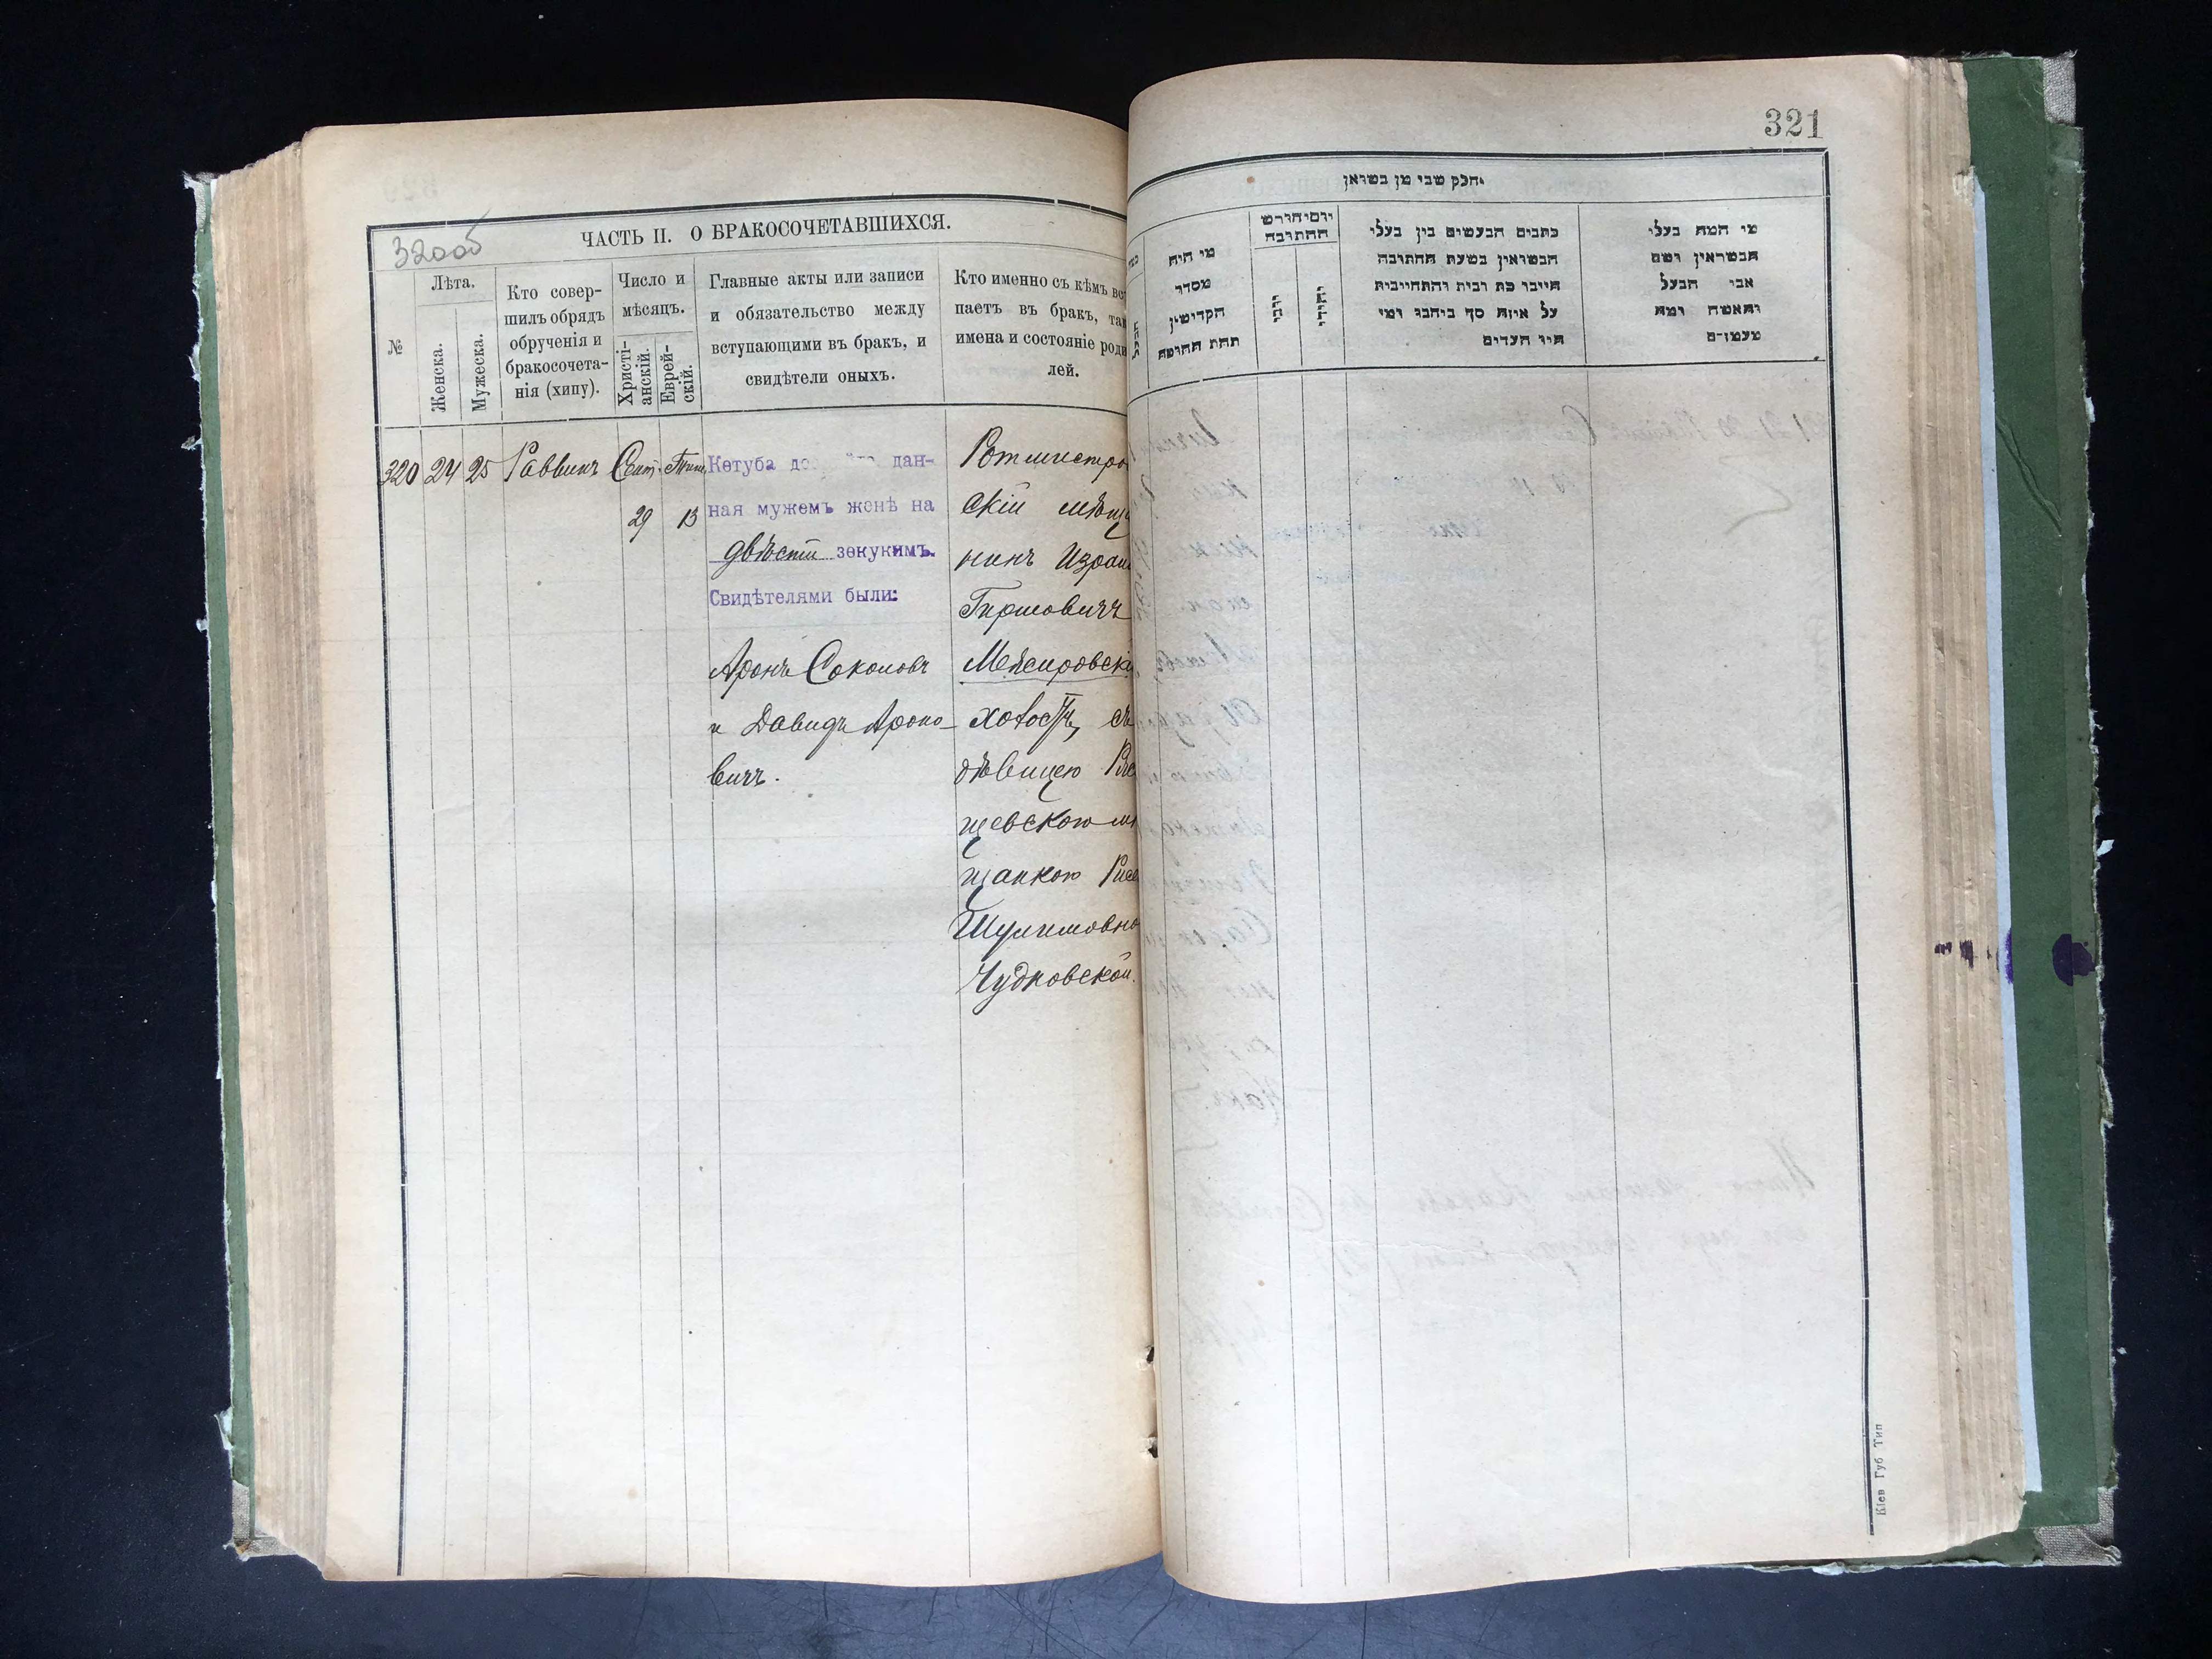 320 об
ЧАСТЬ II. О БРАКОСОЧЕТАВШИХСЯ.
№
Лѣта.
Женска.
Мужеска.
Кто совер-
шилъ обрядъ
обрученія и
бракосочета-
нія (хипу).
Число и
мѣсяцъ.
Христі-
анскій.
Еврей-
скій.
Главные акты или записи
и обязательство между
вступающими въ бракъ, и
свидѣтели оныхъ.
Кто именно съ кѣмъ вс
паетъ въ бракъ, так
имена и состояніе роди
лей.
320 24 25 Раввинъ Сент. Тиш.
29 13
Кетуба дан-
ная мужемъ женѣ на
двѣсти зекукимъ.
Свидѣтелями были:
Аронъ Соколовъ
и Давидъ Ароно-
вичъ.
Ротмистро
скій мѣща
нинъ Израи
Гиршовичъ
холостъ, съ
дѣвицею
щевскою мѣ
щанкою
Шулимовно
Чудновской.
321
חלק שני מן נשואין
מי היה
מסדר
הקדושין
תחת החופה
יום וחודש
החתונה
נוצרי
יהודי
כתבים הנעשים בין בעלי
הנשואין בשעת החתונה
חייבו כת רבית והתחייבות
על איזה סך ביחבו ומי
היו העדים
מי המה בעלי
הנשואין ושם
אבי הבעל
והאשה ומה
מעמדם
Кіев Губ Тип